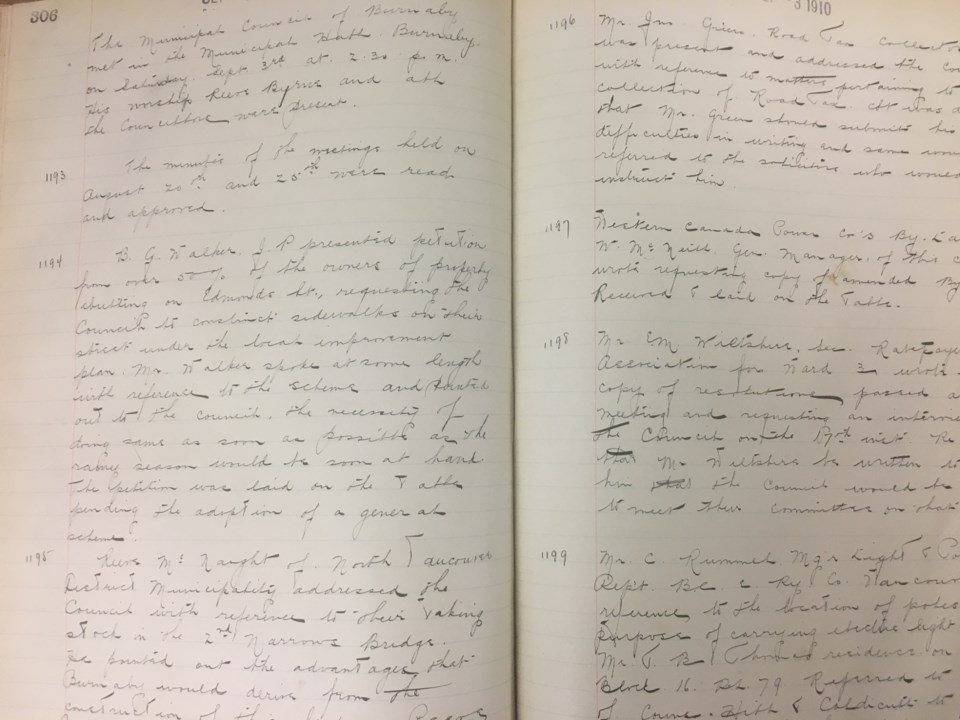 306
The Municipal Council of Burnaby
met in the Municipal Hall. Burnaby.
on Saturday. Sept. 3rd at 2.30 p.m.
His worship Reeve Byrne and all
the Councillors were present.
1193 The minutes of the meetings held on
August 20th and 25th were read
and approved.
1194 B. G. Walker. J.P presented petition
from over 50% of the owners of property
abutting on Edmonds St., requesting the
Council to construct sidewalks on their
street under the local improvement
plan. Mr. Walker spoke at some length
with reference to the scheme and pointed
out to the council. the necessity of
doing same as soon as possible as the
rainy season would be soon at hand
The petition was laid on the Table
pending the adoption of a general
scheme.
1195 Reeve McNaught of. North Vancouver
District Municipality addressed the
Council with reference to their taking
stock in the 2nd Narrows Bridge.
He pointed out the advantages that
Burnaby would derive from the
construction of
3 1910
1196 Mr. Jno. Green. Road Tax
was present and addressed the
with reference to matters pertaining to
collection of Road Tax. It was
that Mr. Green should submit his
difficulties in writing and same
referred to the solicitors who would
instruct him.
1197 Western Canada Power Co's By-
W. McNeill. Gen. Manager. of this
wrote requesting copy of amended By
Received & laid on the Table.
1198 Mr. EM. Wiltshire, Sec. Ratepayers
Association for Ward 3 wrote
copy of resolutions passed
meeting and requesting an
the Council on the inst.
that Mr Wiltshire be written to
him that the Council would be
to meet their committee on that
1199 Mr. C. Rummel. Mgr Light &
Dept. B.C. E. Ry Co.
reference to the location of poles
purpose of carrying electric light
Mr. T. B. Thomas residence on
Block 16. D.L. 79 Referred to
of Couns.